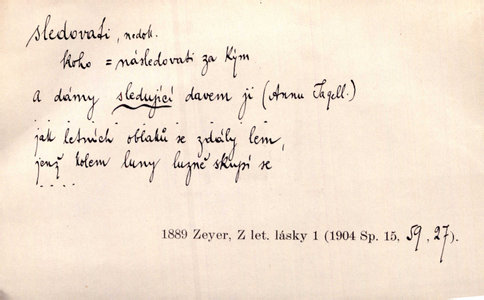 sledovati, nedok.
koho = následovati za kým
a dámy sledující davem ji (Annu Jagell.)
jak letních oblaků se zdály lem,
jenž kolem luny luzně skupí se
. . . .
1889 Zeyer, Z let. lásky 1 (1904 Sp. 15, 59, 27).